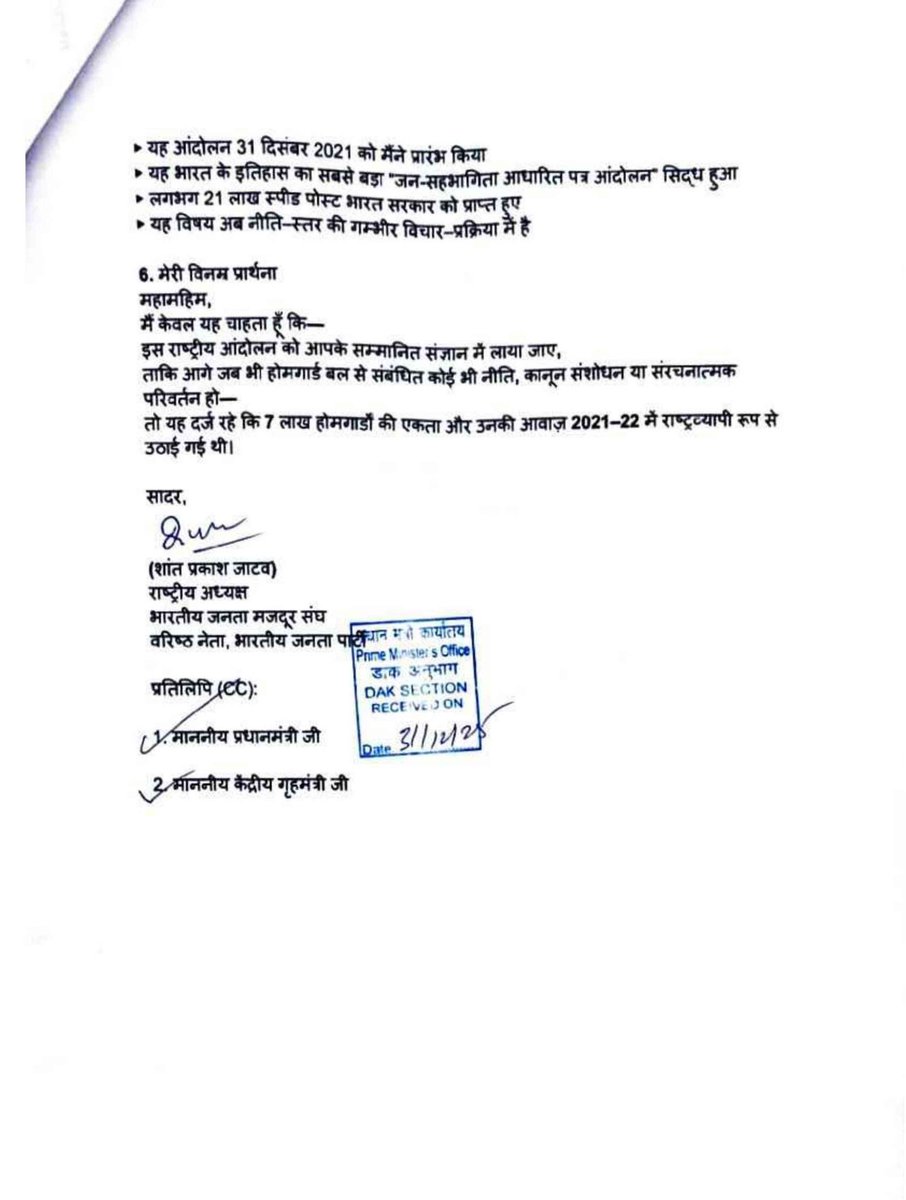 ▸ यह आंदोलन 31 दिसंबर 2021 को मैंने प्रारंभ किया
▸ यह भारत के इतिहास का सबसे बड़ा "जन-सहभागिता आधारित पत्र आंदोलन" सिद्ध हुआ
▸ लगभग 21 लाख स्पीड पोस्ट भारत सरकार को प्राप्त हुए
▸ यह विषय अब नीति–स्तर की गम्भीर विचार–प्रक्रिया में है
6. मेरी विनम्र प्रार्थना
महामहिम,
मैं केवल यह चाहता हूँ कि—
इस राष्ट्रीय आंदोलन को आपके सम्मानित संज्ञान में लाया जाए,
ताकि आगे जब भी होमगार्ड बल से संबंधित कोई भी नीति, कानून संशोधन या संरचनात्मक
परिवर्तन हो—
तो यह दर्ज रहे कि 7 लाख होमगार्डों की एकता और उनकी आवाज़ 2021–22 में राष्ट्रव्यापी रूप से
उठाई गई थी।
सादर,
(शांत प्रकाश जाटव)
राष्ट्रीय अध्यक्ष
भारतीय जनता मजदूर संघ
वरिष्ठ नेता, भारतीय जनता पार्टी
प्रधान मंत्री कार्यालय
Prime Minister's Office
डाक अनुभाग
DAK SECTION
RECEIVED ON
Date 31/12/25
प्रतिलिपि (CC):
1. माननीय प्रधानमंत्री जी
2. माननीय केंद्रीय गृहमंत्री जी